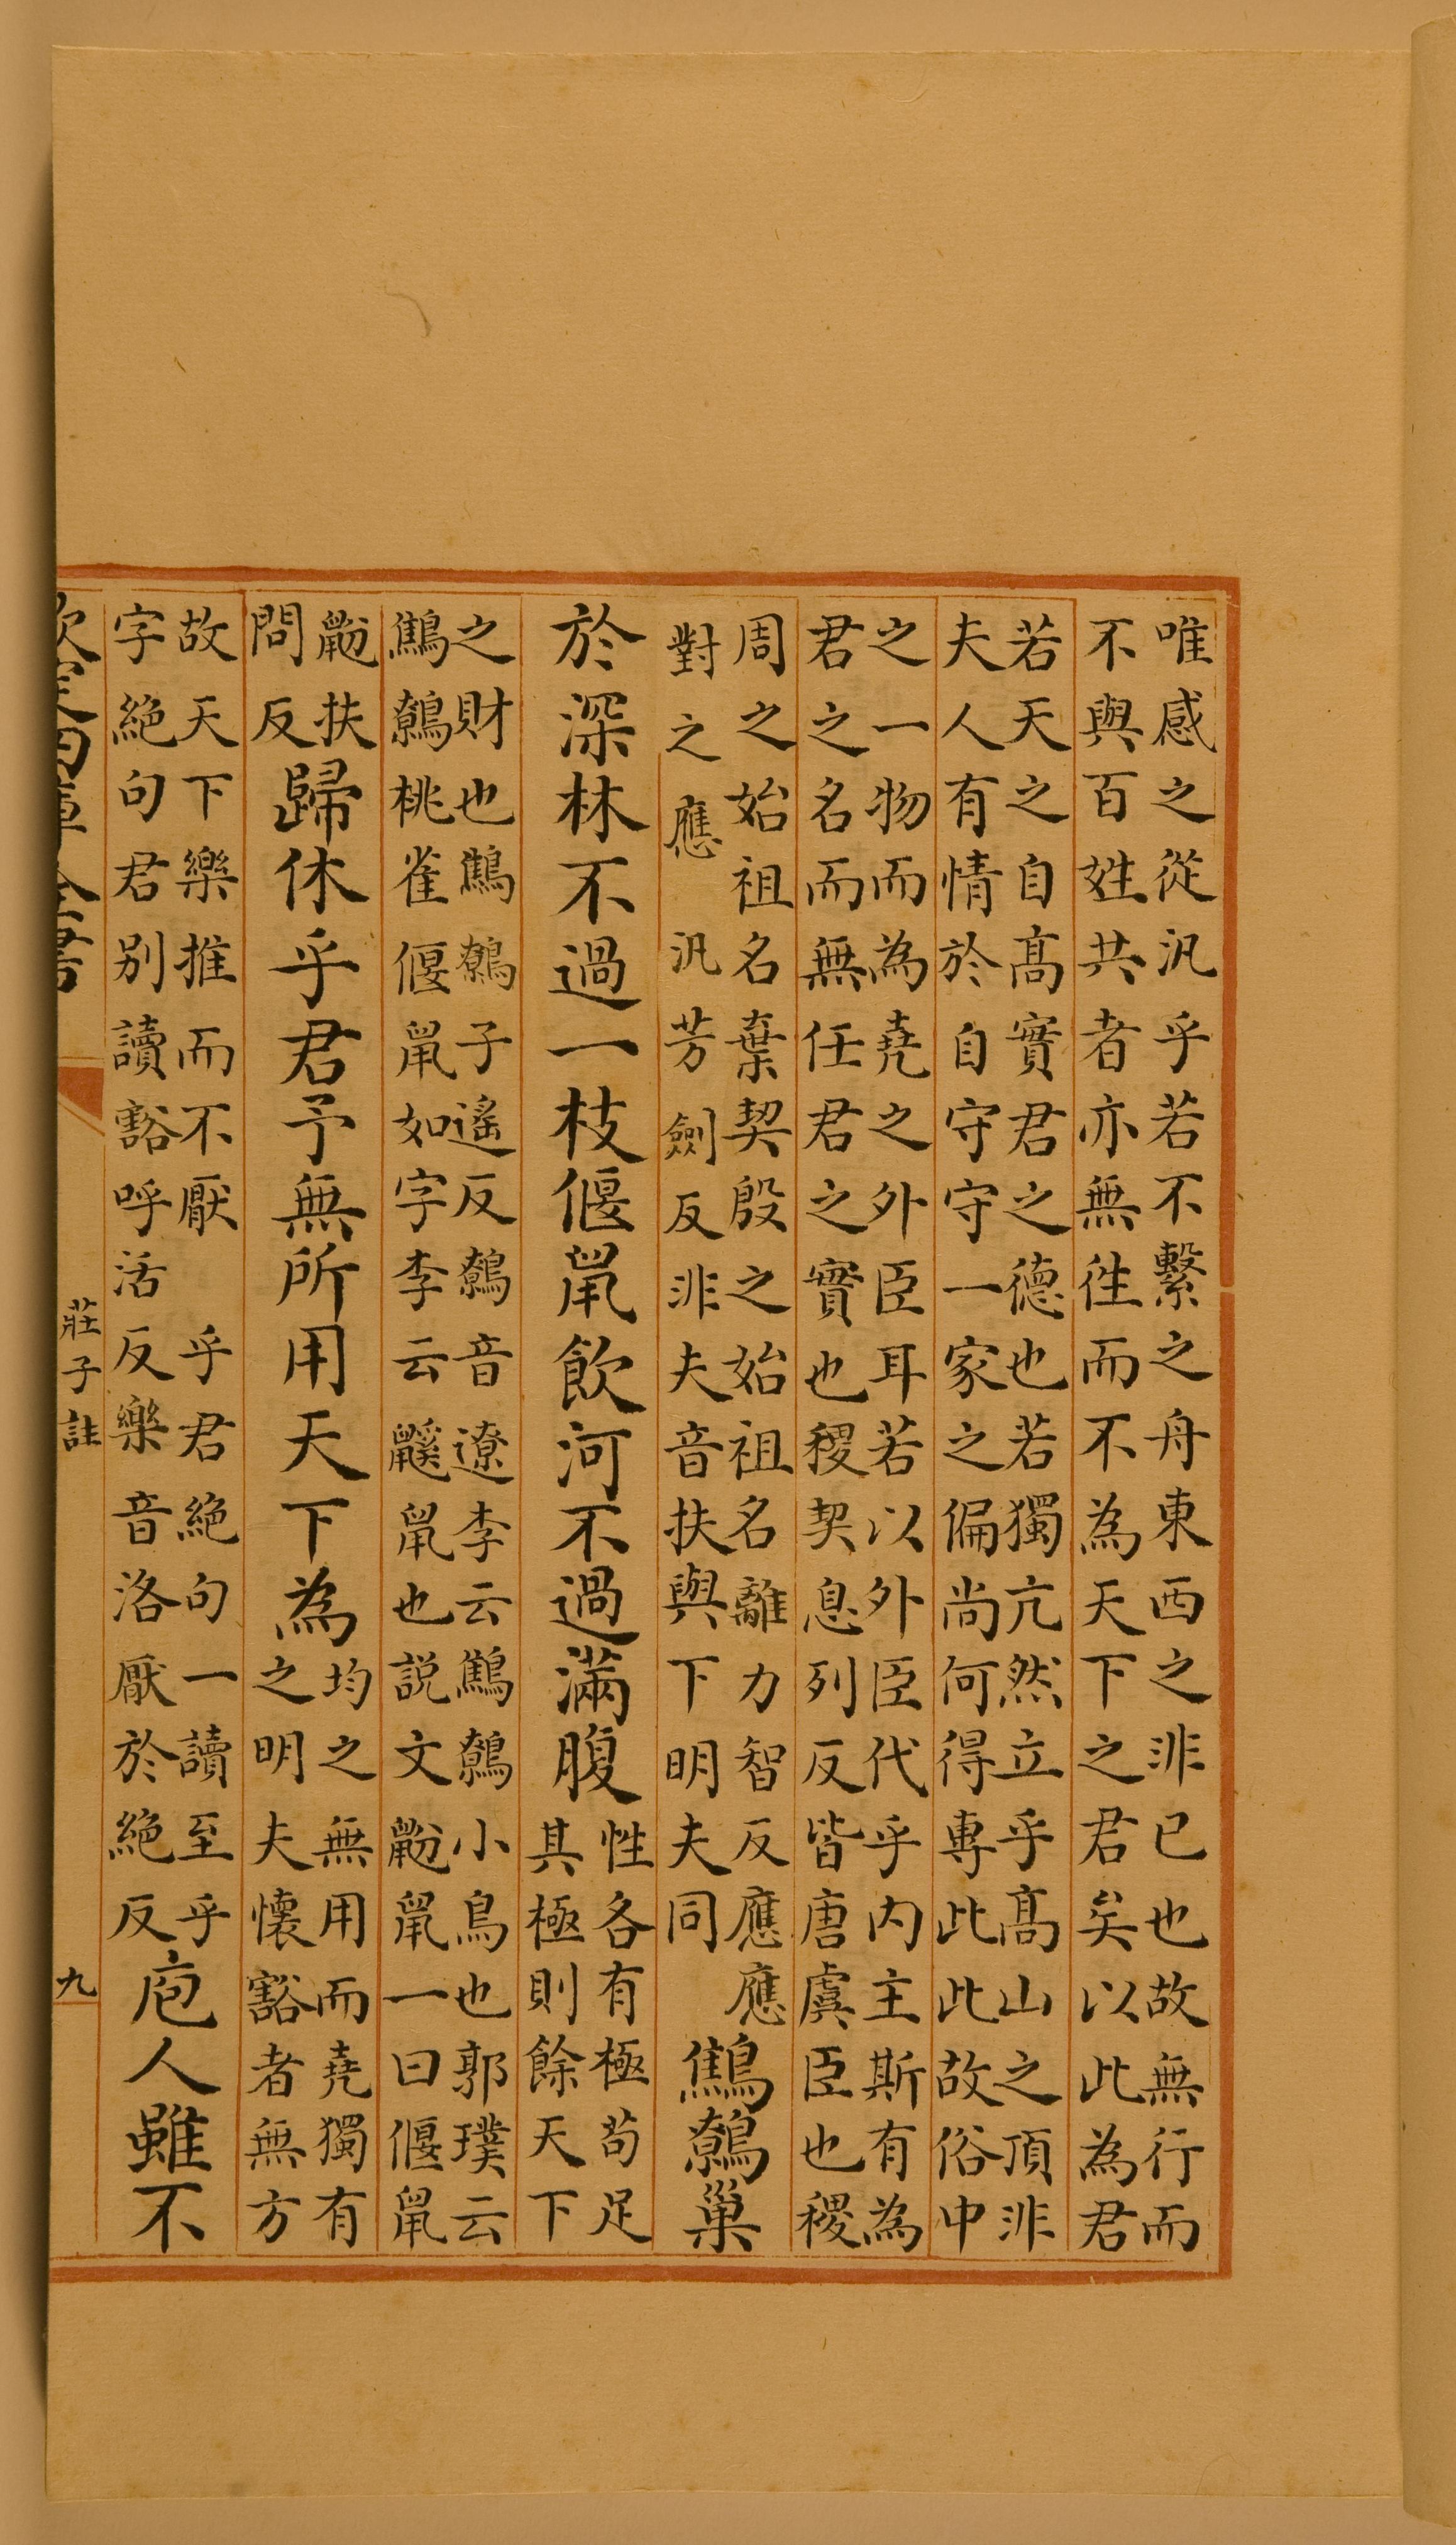 唯感之從汎乎若不繫之舟東西之非已也故無行而
不與百姓共者亦無徃而不為天下之君矣以此為君
若天之自髙實君之德也若獨亢然立乎髙山之頂非
夫人有情於自守守一家之偏尚何得專此此故俗中
之一物而為堯之外臣耳若以外臣代乎内主斯有為
君之名而無任君之實也稷契息列反皆唐虞臣也稷
周之始祖名棄契殷之始祖名離力智反應應
對之應 汎芳劍反非夫音扶與下明夫同
鷦鷯巢
於深林不過一枝偃鼠飲河不過滿腹
性各有極茍足
其極則餘天下
之財也鷦鷯子遙反鷯音遼李云鷦鷯小鳥也郭璞云
鷦鷯桃雀偃鼠如字李云鼷鼠也説文鼢鼠一曰偃鼠
鼢扶
問反
歸休乎君予無所用天下為
均之無用而堯獨有
之明夫懐豁者無方
故天下樂推而不厭 乎君絶句一讀至乎
字絶句君别讀豁呼活反樂音洛厭於絶反
庖人雖不
莊子註
九